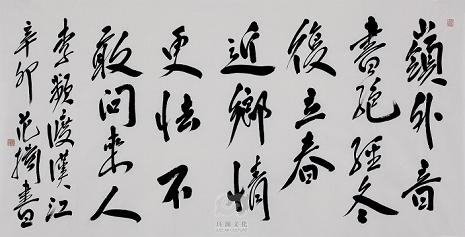 嶺外音
書絕經冬
復立春
近鄉情
更怯不
敢問來人
李頻渡漢江
辛卯 范 書
文化